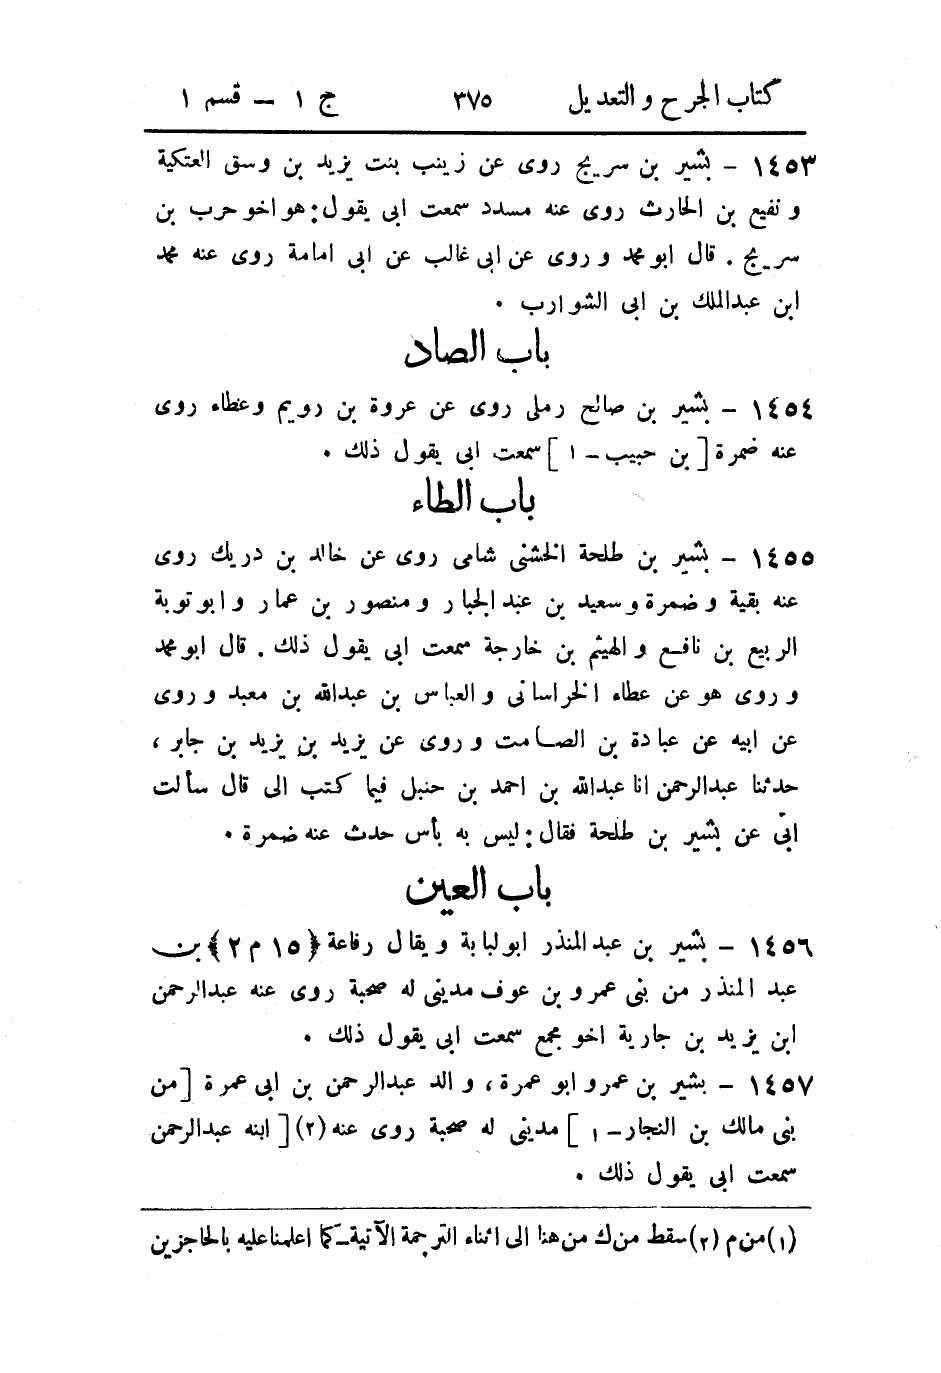 كتاب الجرح والتعديل ٣٧٥ ج ١ – قسم ١
١٤٥٣ – بشير بن سريج روى عن زينب بنت يزيد بن وسق العتكية
ونفيع بن الحارث روى عنه مسدد سمعت ابى يقول: هو اخو حرب بن
سريج . قال ابو محمد وروى عن ابى غالب عن ابى امامة روى عنه محمد
ابن عبدالملك بن ابى الشوارب .
باب الصاد
١٤٥٤ – بشير بن صالح رملى روى عن عروة بن رويم وعطاء روى
عنه ضمرة [ بن حبيب – ١ ] سمعت ابى يقول ذلك .
باب الطاء
١٤٥٥ – بشير بن طلحة الخشنى شامى روى عن خالد بن دريك روى
عنه بقية وضمرة وسعيد بن عبد الجبار ومنصور بن عمار وابو توبة
الربيع بن نافع والهيثم بن خارجة سمعت ابى يقول ذلك . قال ابو محمد
وروى هو عن عطاء الخراسانى والعباس بن عبدالله بن معبد وروى
عن ابيه عن عبادة بن الصامت وروى عن يزيد بن يزيد بن جابر ،
حدثنا عبدالرحمن انا عبدالله بن احمد بن حنبل فيما كتب الى قال سألت
ابى عن بشير بن طلحة فقال: ليس به بأس حدث عنه ضمرة .
باب العين
١٤٥٦ – بشير بن عبد المنذر ابو لبابة ويقال رفاعة ﴿ ١٥ م ٢ ﴾ بن
عبد المنذر من بنى عمرو بن عوف مدينى له صحبة روى عنه عبدالرحمن
ابن يزيد بن جارية اخو مجمع سمعت ابى يقول ذلك .
١٤٥٧ – بشير بن عمرو ابو عمرة ، والد عبدالرحمن بن ابى عمرة [ من
بنى مالك بن النجار – ١ ] مدينى له صحبة روى عنه (٢) [ ابنه عبدالرحمن
سمعت ابى يقول ذلك .
(١) من م (٢) سقط من ك من هنا الى اثناء الترجمة الآتية – كما اعلمنا عليه بالحاجزين